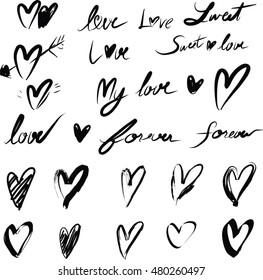 love Love Sweet
Love Sweet love
My love
love forever forever
shutterstock.com · 480260497